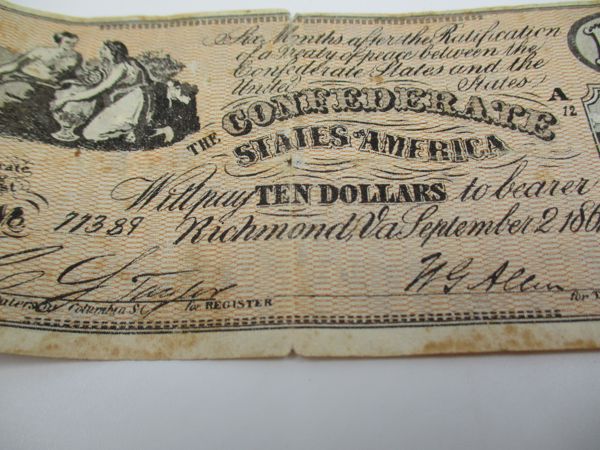 Six Months after the Ratification
of a Treaty of peace between the
Confederate States and the
United States
A
12
THE CONFEDERATE
STATES OF AMERICA
Will pay TEN DOLLARS to bearer
No 77389
Richmond, Va September 2 186
for REGISTER
W G Allen
Columbia S.C.
for T